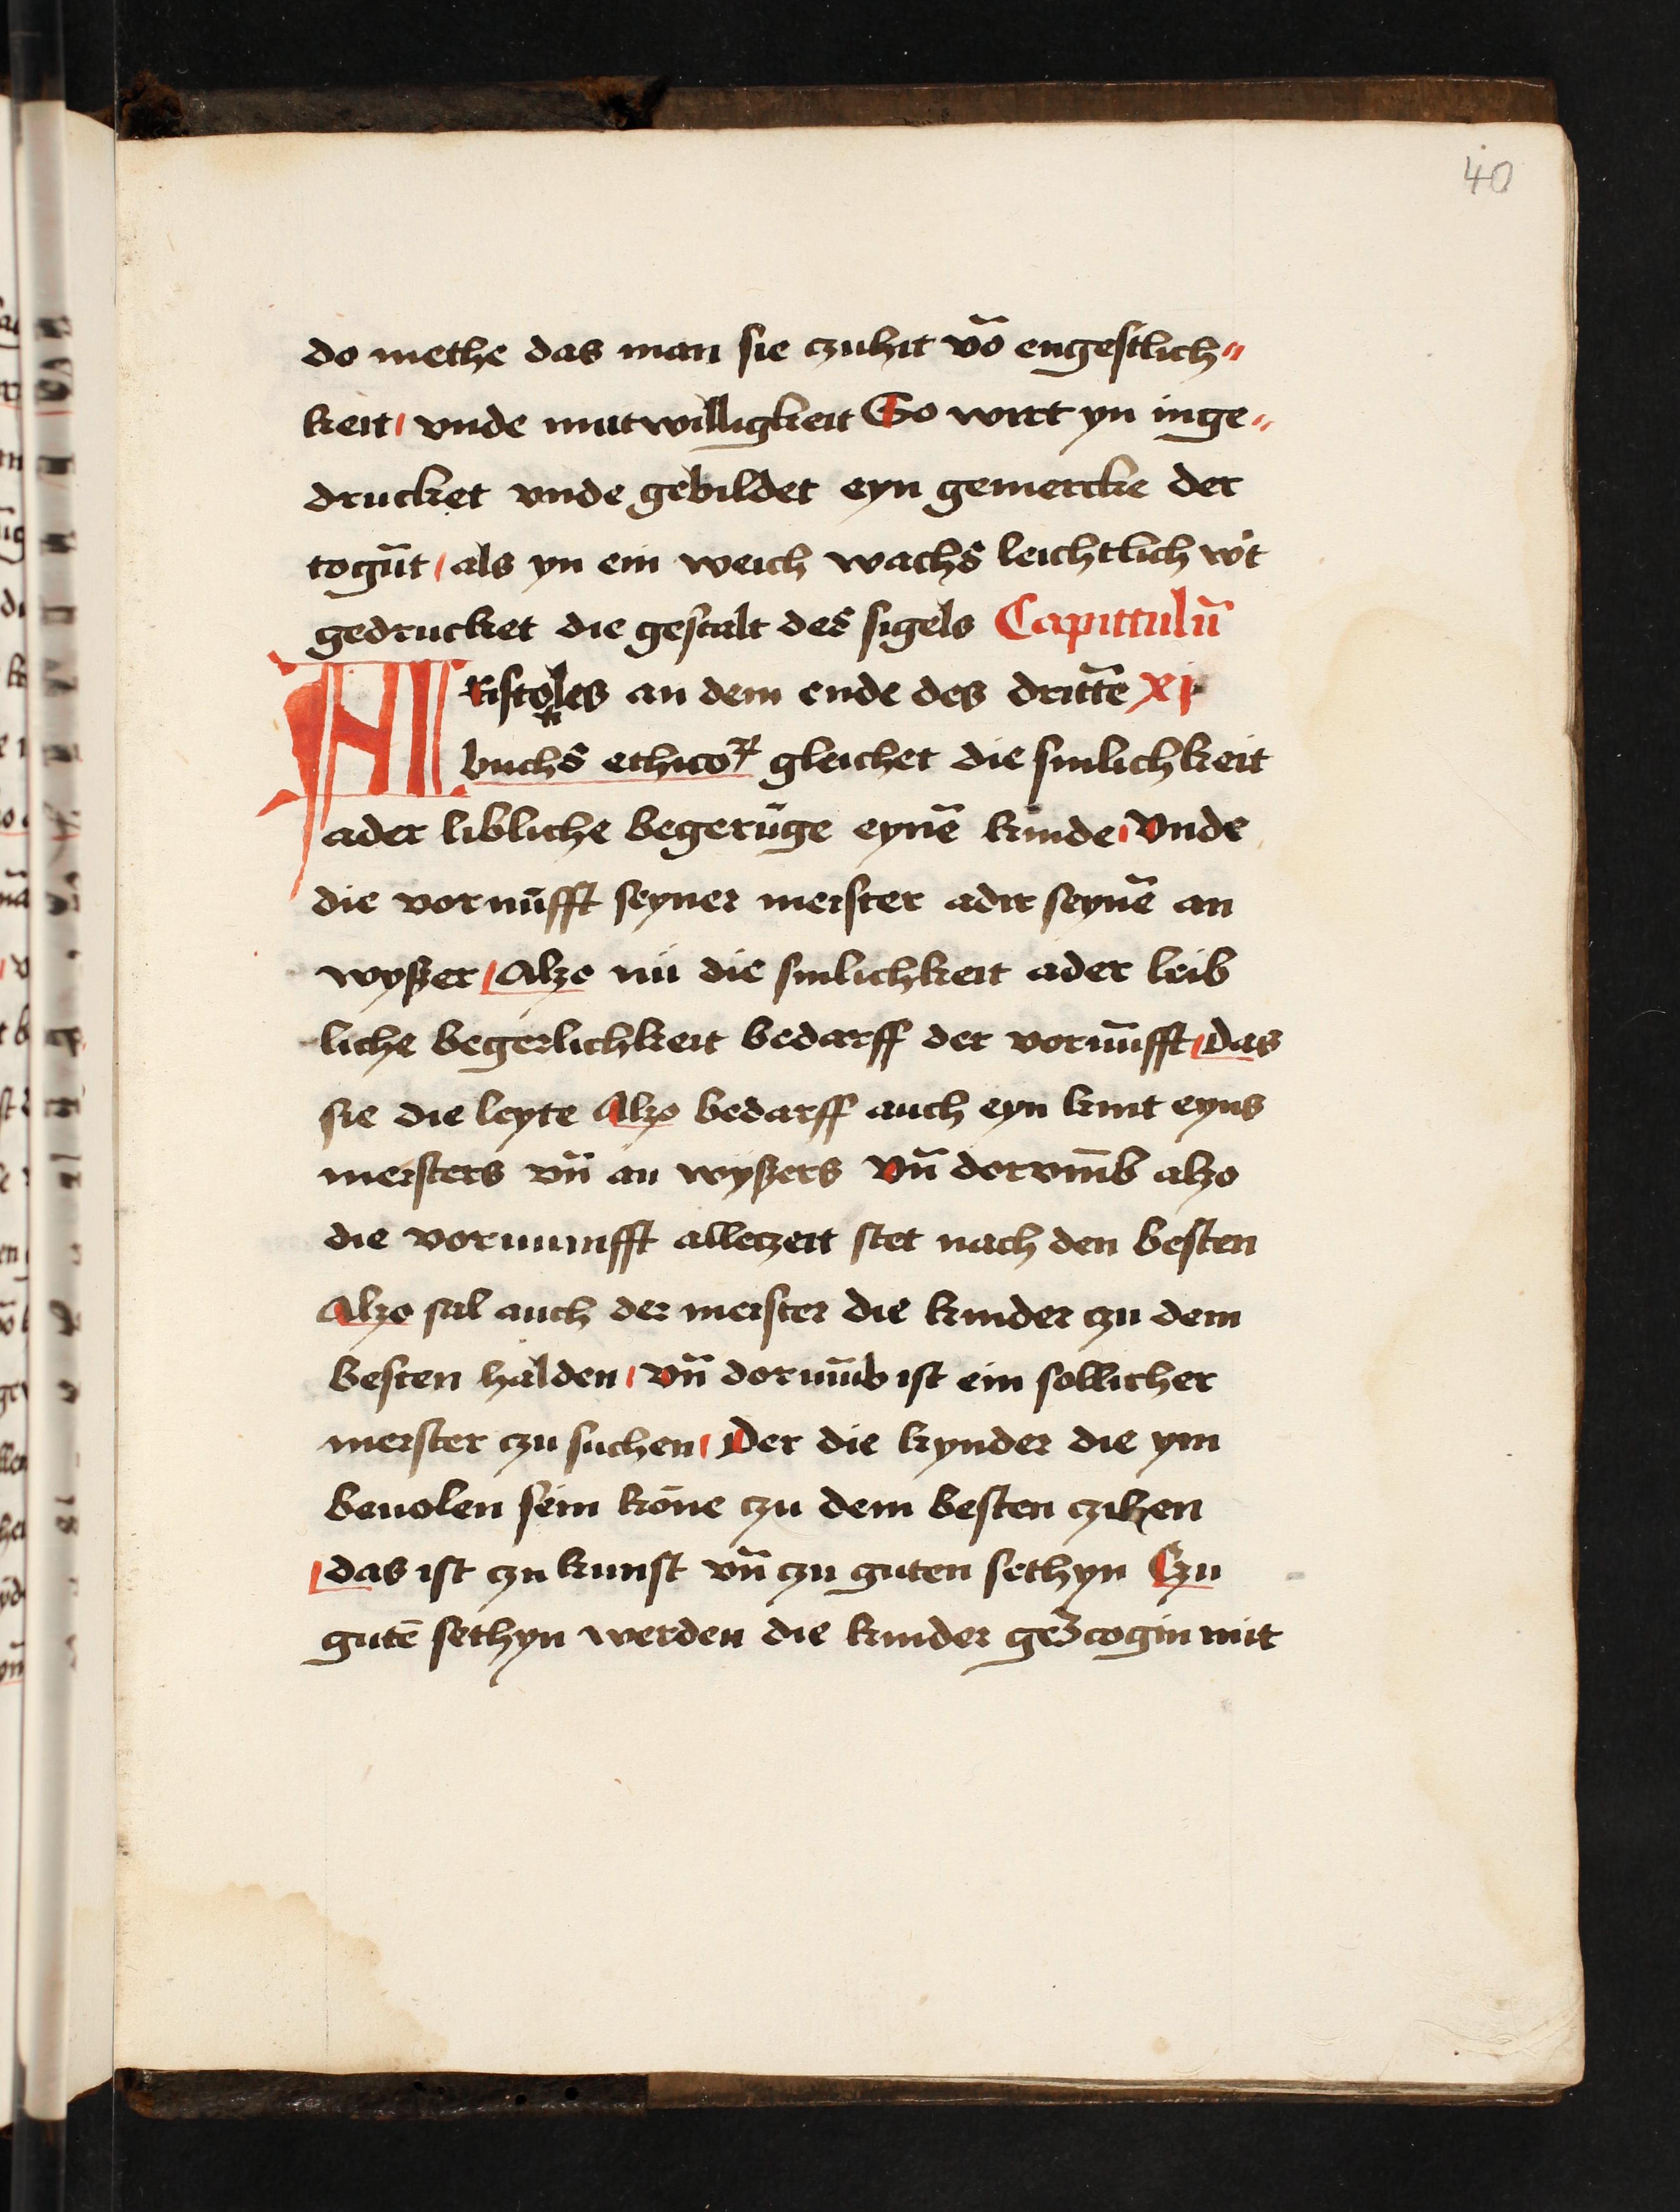 40
do methe das man sie czuhit vō engestlich〃
keit / vnde mutwilligkeit So wirt yn inge〃
drucket vnde gebildet eyn gemercke der
togūt / als yn ein weich wachs leichtlich wͦt
gedrucket die gestalt des sigels Capittulū
ARistoteles an dem ende des drittē xj
buchs ethicoꝝ gleichet die sinlichkeit
ader libliche begerūge eynē kinde / Vnde
die vornūfft seyner meister adir seynē an
wyßer / Alzo nu die sinlichkeit ader leib
liche begerlichkeit bedarff der vornūfft / Das
sie die leyte Alzo bedarff auch eyn kint eyns
meisters vn̄ an wyßers Vn̄ dorvm̄b alzo
die vornunfft alleczeit stet nach den besten
Alzo sal auch der meister die kinder czu dem
besten halden / Vn̄ dorum̄b ist ein sollicher
meister czu suchen / Der die kynder die ym
beuolen sein kōne czu dem besten czihen
/ das ist czu kunst vn̄ czu guten sethyn Czu
gutē sethyn werden die kinder geʒcogin mit